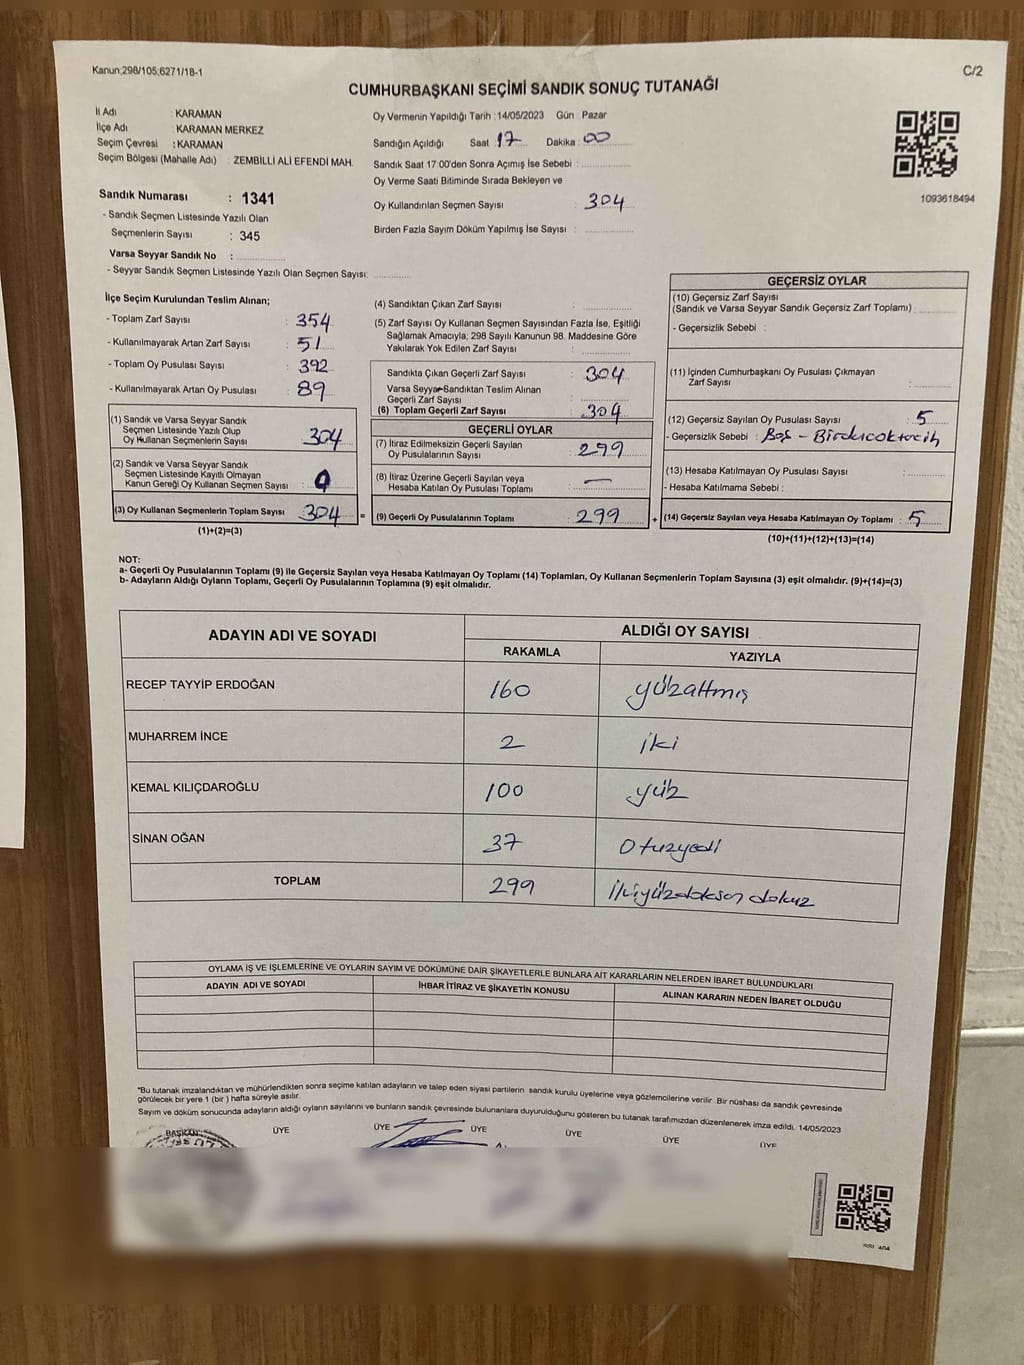 Kanun:298/105;6271/18-1
C/2
CUMHURBAŞKANI SEÇİMİ SANDIK SONUÇ TUTANAĞI
İl Adı : KARAMAN
İlçe Adı : KARAMAN MERKEZ
Seçim Çevresi : KARAMAN
Seçim Bölgesi (Mahalle Adı) : ZEMBİLLİ ALİ EFENDİ MAH.
Sandık Numarası : 1341
- Sandık Seçmen Listesinde Yazılı Olan
Seçmenlerin Sayısı : 345
Varsa Seyyar Sandık No :
- Seyyar Sandık Seçmen Listesinde Yazılı Olan Seçmen Sayısı:
Oy Vermenin Yapıldığı Tarih : 14/05/2023 Gün : Pazar
Sandığın Açıldığı Saat : 17 Dakika : 00
Sandık Saat 17:00'den Sonra Açımış İse Sebebi :
Oy Verme Saati Bitiminde Sırada Bekleyen ve
Oy Kullandırılan Seçmen Sayısı : 304
Birden Fazla Sayım Döküm Yapılmış İse Sayısı :
1093618494
İlçe Seçim Kurulundan Teslim Alınan;
- Toplam Zarf Sayısı : 354
- Kullanılmayarak Artan Zarf Sayısı : 51
- Toplam Oy Pusulası Sayısı : 392
- Kullanılmayarak Artan Oy Pusulası : 89
(1) Sandık ve Varsa Seyyar Sandık
Seçmen Listesinde Yazılı Olup
Oy Kullanan Seçmenlerin Sayısı : 304
(2) Sandık ve Varsa Seyyar Sandık
Seçmen Listesinde Kayıtlı Olmayan
Kanun Gereği Oy Kullanan Seçmen Sayısı : 0
(3) Oy Kullanan Seçmenlerin Toplam Sayısı : 304
(1)+(2)=(3)
(4) Sandıktan Çıkan Zarf Sayısı :
(5) Zarf Sayısı Oy Kullanan Seçmen Sayısından Fazla İse, Eşitliği
Sağlamak Amacıyla; 298 Sayılı Kanunun 98. Maddesine Göre
Yakılarak Yok Edilen Zarf Sayısı :
Sandıkta Çıkan Geçerli Zarf Sayısı : 304
Varsa Seyyar Sandıktan Teslim Alınan
Geçerli Zarf Sayısı :
(6) Toplam Geçerli Zarf Sayısı : 304
GEÇERLİ OYLAR
(7) İtiraz Edilmeksizin Geçerli Sayılan
Oy Pusulalarının Sayısı : 299
(8) İtiraz Üzerine Geçerli Sayılan veya
Hesaba Katılan Oy Pusulası Toplamı : —
= (9) Geçerli Oy Pusulalarının Toplamı : 299
GEÇERSİZ OYLAR
(10) Geçersiz Zarf Sayısı
(Sandık ve Varsa Seyyar Sandık Geçersiz Zarf Toplamı) :
- Geçersizlik Sebebi :
(11) İçinden Cumhurbaşkanı Oy Pusulası Çıkmayan
Zarf Sayısı :
(12) Geçersiz Sayılan Oy Pusulası Sayısı : 5
- Geçersizlik Sebebi : Boş - Birden çok tercih
(13) Hesaba Katılmayan Oy Pusulası Sayısı :
- Hesaba Katılmama Sebebi :
+ (14) Geçersiz Sayılan veya Hesaba Katılmayan Oy Toplamı : 5
(10)+(11)+(12)+(13)=(14)
NOT:
a- Geçerli Oy Pusulalarının Toplamı (9) ile Geçersiz Sayılan veya Hesaba Katılmayan Oy Toplamı (14) Toplamları, Oy Kullanan Seçmenlerin Toplam Sayısına (3) eşit olmalıdır. (9)+(14)=(3)
b- Adayların Aldığı Oyların Toplamı, Geçerli Oy Pusulalarının Toplamına (9) eşit olmalıdır.
ADAYIN ADI VE SOYADI
ALDIĞI OY SAYISI
RAKAMLA YAZIYLA
RECEP TAYYİP ERDOĞAN 160 yüzaltmış
MUHARREM İNCE 2 iki
KEMAL KILIÇDAROĞLU 100 yüz
SİNAN OĞAN 37 Otuzyedi
TOPLAM 299 İkiyüzdoksan dokuz
OYLAMA İŞ VE İŞLEMLERİNE VE OYLARIN SAYIM VE DÖKÜMÜNE DAİR ŞİKAYETLERLE BUNLARA AİT KARARLARIN NELERDEN İBARET BULUNDUKLARI
ADAYIN ADI VE SOYADI İHBAR İTİRAZ VE ŞİKAYETİN KONUSU ALINAN KARARIN NEDEN İBARET OLDUĞU
*Bu tutanak imzalandıktan ve mühürlendikten sonra seçime katılan adayların ve talep eden siyasi partilerin sandık kurulu üyelerine veya gözlemcilerine verilir. Bir nüshası da sandık çevresinde
görülecek bir yere 1 (bir ) hafta süreyle asılır.
Sayım ve döküm sonucunda adayların aldığı oyların sayılarını ve bunların sandık çevresinde bulunanlara duyurulduğunu gösteren bu tutanak tarafımızdan düzenlenerek imza edildi. 14/05/2023
BAŞKAN ÜYE ÜYE ÜYE ÜYE ÜYE ÜYE